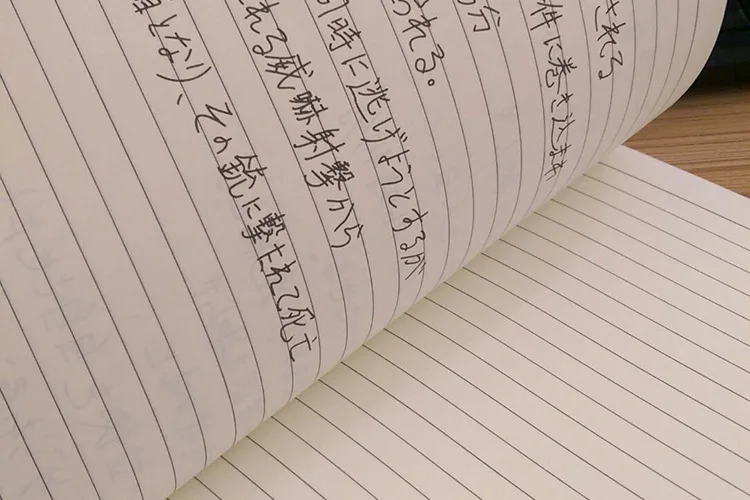 される
件に巻き込まれ
分
られる。
時に逃げようとするが
れる威嚇射撃から
となり)、その銃に撃たれて死亡